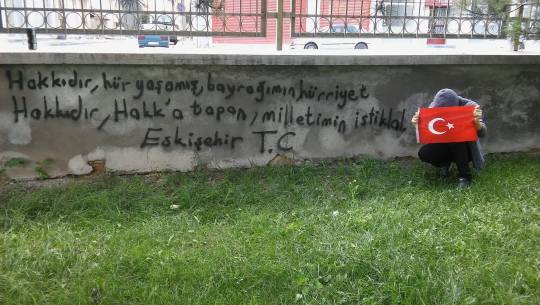 Hakkıdır, hür yaşamış, bayrağımın hürriyet
Hakkıdır, Hakk'a tapan, milletimin istiklal.
Eskişehir T.C